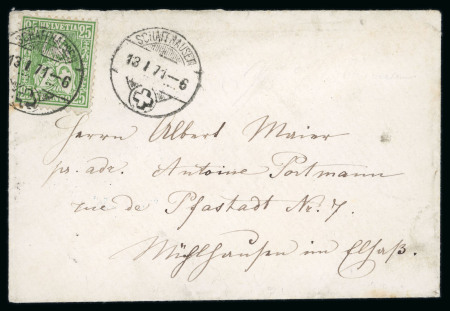 HELVETIA 25
SCHAFFHAUSEN
13 I 71-6
SCHAFFHAUSEN
13 I 71-6
Herrn Albert Maier
pr. adr. Antoine Portmann
rue de Pfastadt Nr. 7.
Mühlhausen im Elsaß.